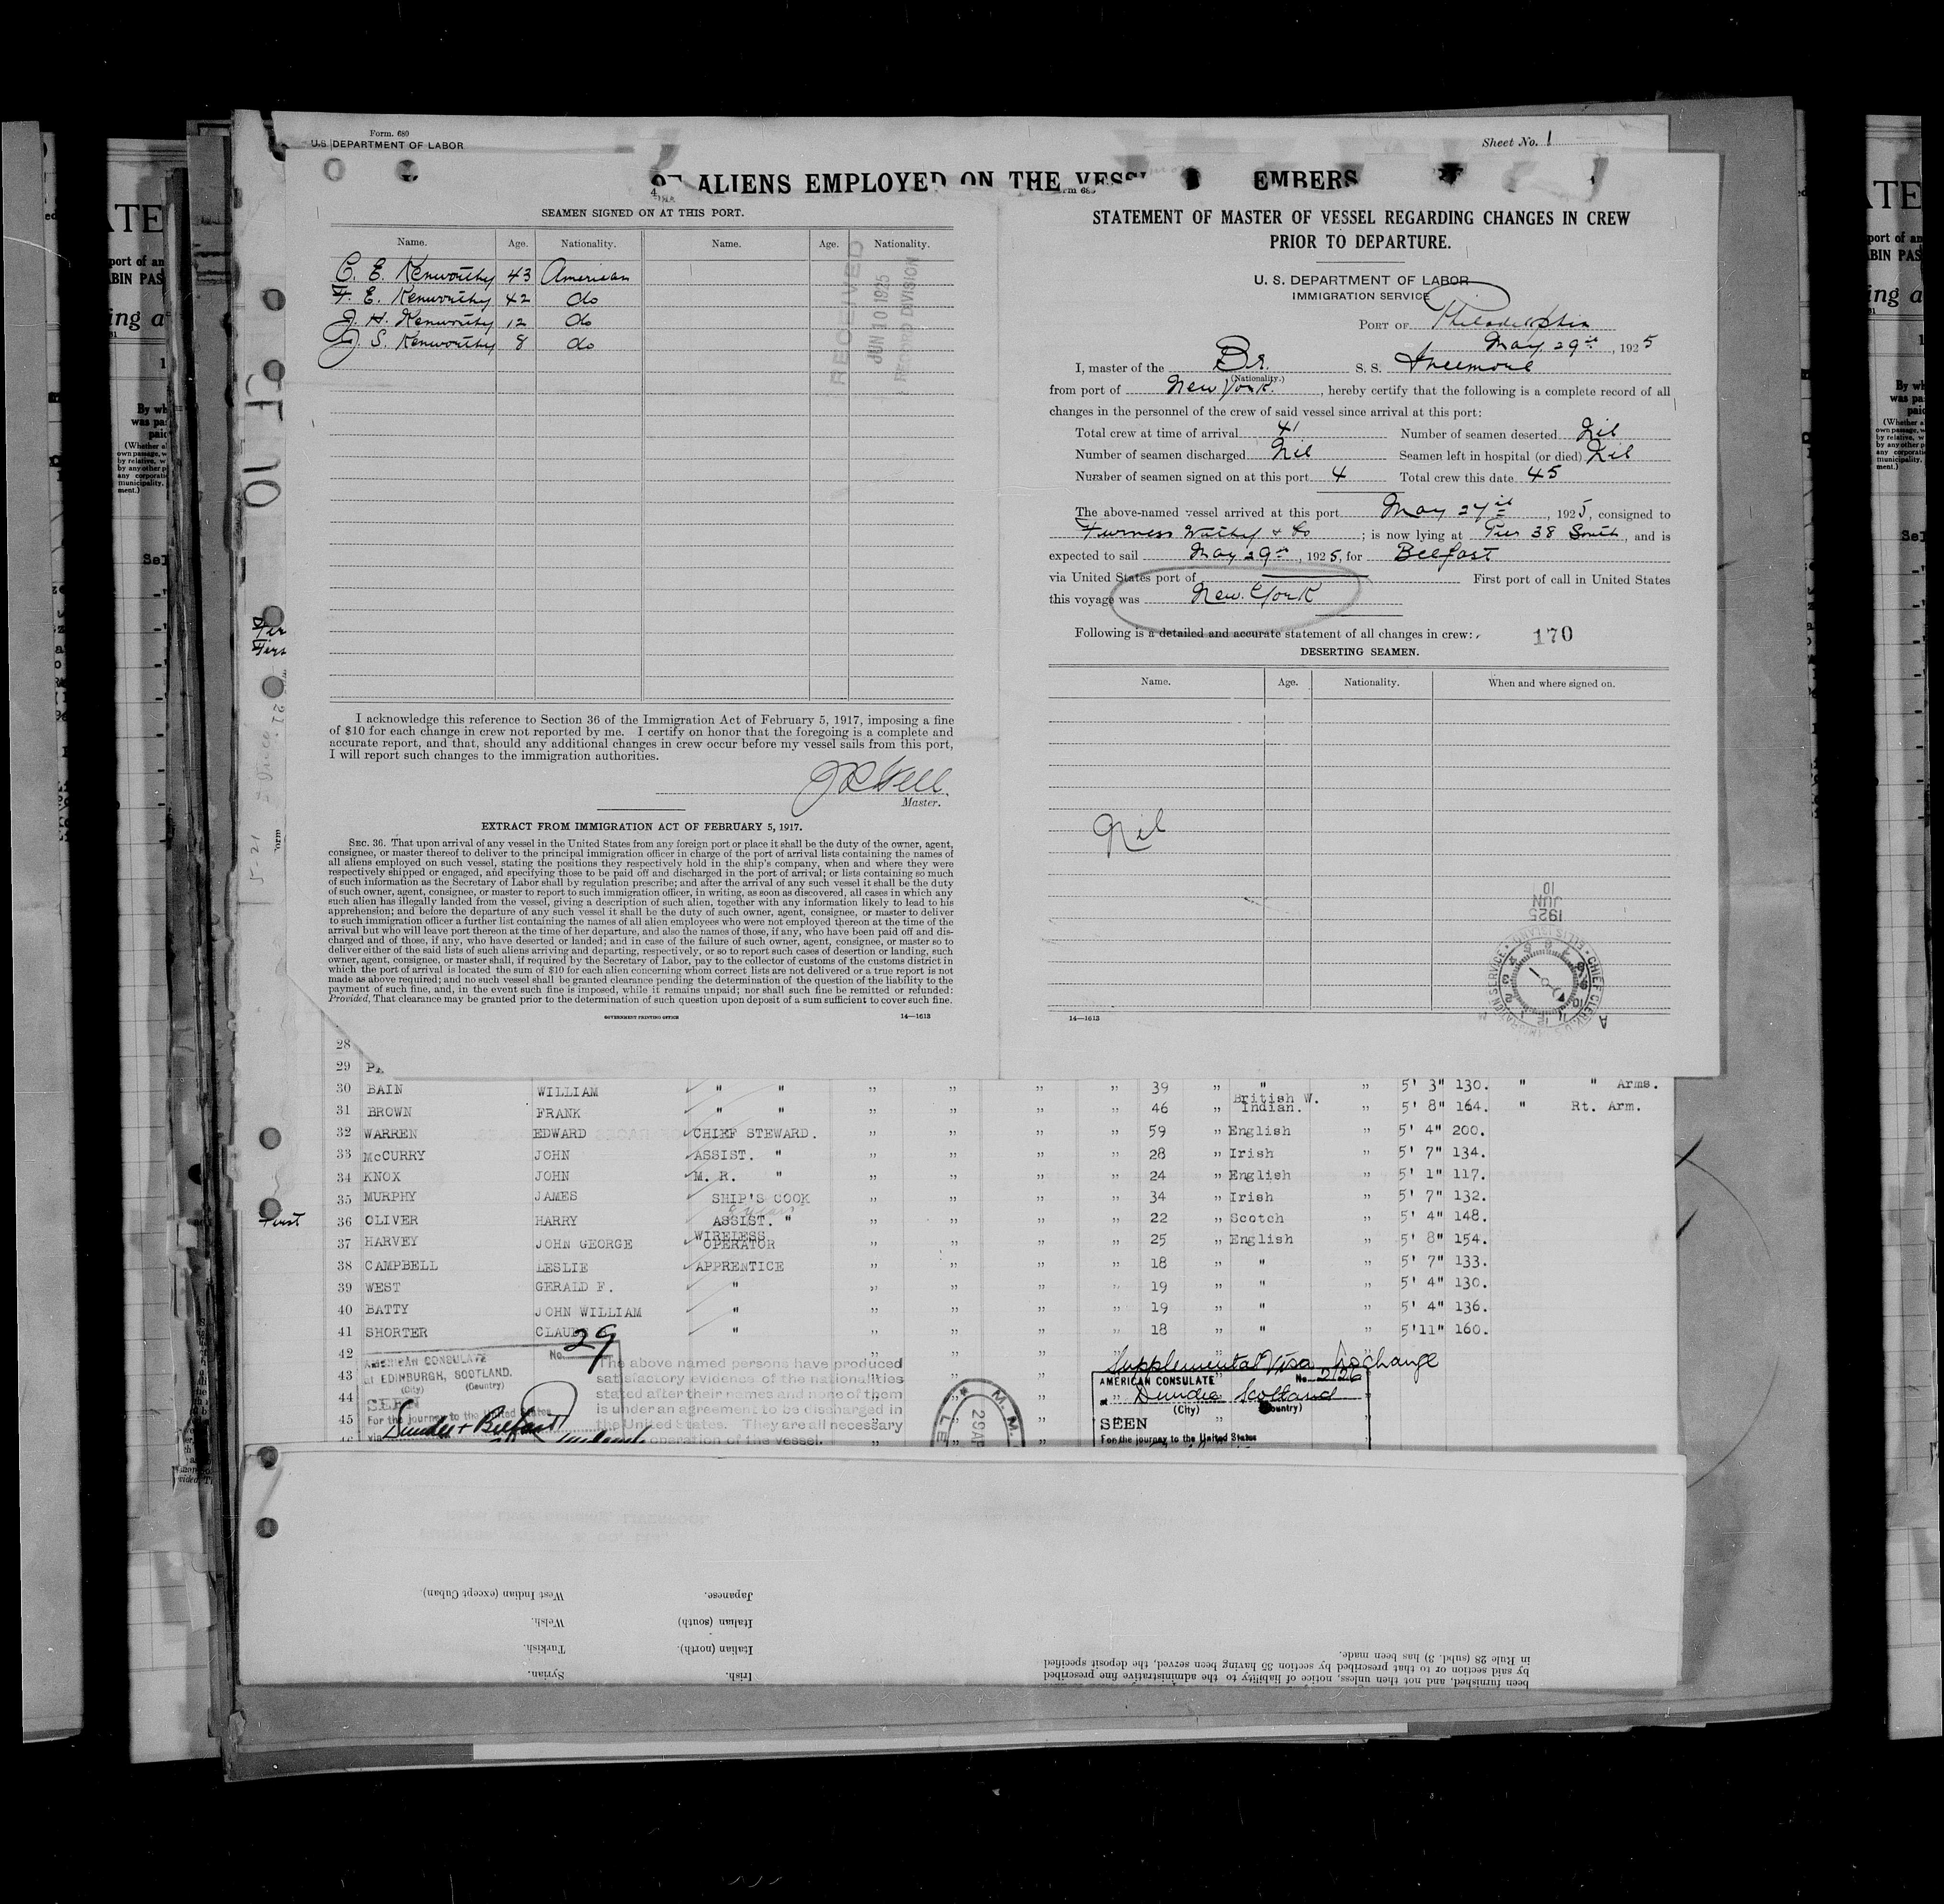 Form. 680
U.S. DEPARTMENT OF LABOR
Sheet No. 1
ALIENS EMPLOYED ON THE VESS EMBERS
SEAMEN SIGNED ON AT THIS PORT.
Name. Age. Nationality. Name. Age. Nationality.
C. E. Kenworthy 43 American
F. E. Kenworthy 42 do
J. H. Kenworthy 12 do
J. S. Kenworthy 8 do
RECEIVED
JUN 10 1925
RECORD DIVISION
I acknowledge this reference to Section 36 of the Immigration Act of February 5, 1917, imposing a fine
of $10 for each change in crew not reported by me. I certify on honor that the foregoing is a complete and
accurate report, and that, should any additional changes in crew occur before my vessel sails from this port,
I will report such changes to the immigration authorities.
Master.
EXTRACT FROM IMMIGRATION ACT OF FEBRUARY 5, 1917.
SEC. 36. That upon arrival of any vessel in the United States from any foreign port or place it shall be the duty of the owner, agent,
consignee, or master thereof to deliver to the principal immigration officer in charge of the port of arrival lists containing the names of
all aliens employed on such vessel, stating the positions they respectively hold in the ship's company, when and where they were
respectively shipped or engaged, and specifying those to be paid off and discharged in the port of arrival; or lists containing so much
of such information as the Secretary of Labor shall by regulation prescribe; and after the arrival of any such vessel it shall be the duty
of such owner, agent, consignee, or master to report to such immigration officer, in writing, as soon as discovered, all cases in which any
such alien has illegally landed from the vessel, giving a description of such alien, together with any information likely to lead to his
apprehension; and before the departure of any such vessel it shall be the duty of such owner, agent, consignee, or master to deliver
to such immigration officer a further list containing the names of all alien employees who were not employed thereon at the time of the
arrival but who will leave port thereon at the time of her departure, and also the names of those, if any, who have been paid off and dis-
charged and of those, if any, who have deserted or landed; and in case of the failure of such owner, agent, consignee, or master so to
deliver either of the said lists of such aliens arriving and departing, respectively, or so to report such cases of desertion or landing, such
owner, agent, consignee, or master shall, if required by the Secretary of Labor, pay to the collector of customs of the customs district in
which the port of arrival is located the sum of $10 for each alien concerning whom correct lists are not delivered or a true report is not
made as above required; and no such vessel shall be granted clearance pending the determination of the question of the liability to the
payment of such fine, and, in the event such fine is imposed, while it remains unpaid; nor shall such fine be remitted or refunded:
Provided, That clearance may be granted prior to the determination of such question upon deposit of a sum sufficient to cover such fine.
GOVERNMENT PRINTING OFFICE 14—1613
STATEMENT OF MASTER OF VESSEL REGARDING CHANGES IN CREW
PRIOR TO DEPARTURE.
U. S. DEPARTMENT OF LABOR
IMMIGRATION SERVICE
PORT OF Philadelphia
May 29th, 1925
I, master of the Br. S. S.
(Nationality.)
from port of New York, hereby certify that the following is a complete record of all
changes in the personnel of the crew of said vessel since arrival at this port:
Total crew at time of arrival 41 Number of seamen deserted Nil
Number of seamen discharged Nil Seamen left in hospital (or died) Nil
Number of seamen signed on at this port 4 Total crew this date 45
The above-named vessel arrived at this port May 27th, 1925, consigned to
Furness Withy & Co; is now lying at Pier 38 South, and is
expected to sail May 29th, 1925, for Belfast
via United States port of First port of call in United States
this voyage was New York
Following is a detailed and accurate statement of all changes in crew:
170
DESERTING SEAMEN.
Name. Age. Nationality. When and where signed on.
Nil
JUN 10 1925
CHIEF CLERK U.S. IMMIGRATION SERVICE ELLIS ISLAND
14—1613
28
29
30 BAIN WILLIAM " " " " " " 39 " " " 5' 3" 130. " " Arms.
31 BROWN FRANK " " " " " " 46 " British W. Indian. " 5' 8" 164. " Rt. Arm.
32 WARREN EDWARD CHIEF STEWARD. " " " " 59 " English " 5' 4" 200.
33 McCURRY JOHN ASSIST. " " " " " 28 " Irish " 5' 7" 134.
34 KNOX JOHN M. R. " " " " " 24 " English " 5' 1" 117.
35 MURPHY JAMES SHIP'S COOK " " " " 34 " Irish " 5' 7" 132.
36 OLIVER HARRY ASSIST. " " " " " 22 " Scotch " 5' 4" 148.
37 HARVEY JOHN GEORGE WIRELESS OPERATOR " " " " 25 " English " 5' 8" 154.
38 CAMPBELL LESLIE APPRENTICE " " " " 18 " " " 5' 7" 133.
39 WEST GERALD F. " " " " " 19 " " " 5' 4" 130.
40 BATTY JOHN WILLIAM " " " " " 19 " " " 5' 4" 136.
41 SHORTER " " " " " 18 " " " 5'11" 160.
42
43
44
45
AMERICAN CONSULATE No. 29
at EDINBURGH, SCOTLAND.
(City) (Country)
SEEN
For the journey to the United States
Dundee + Belfast
The above named persons have produced
satisfactory evidence of the nationalities
stated after their names and none of them
is under an agreement to be discharged in
the United States. They are all necessary
operation of the vessel.
Supplemental Visa
AMERICAN CONSULATE No. 2126
at Dundee Scotland
(City) (Country)
SEEN
For the journey to the United States
West Indian (except Cuban).
Welsh.
Turkish.
Syrian.
Japanese.
Italian (south)
Italian (north).
Irish.
been furnished, and not then unless, notice of liability to the administrative fine prescribed
by said section or to that prescribed by section 35 having been served, the deposit specified
in Rule 28 (subd. 3) has been made.